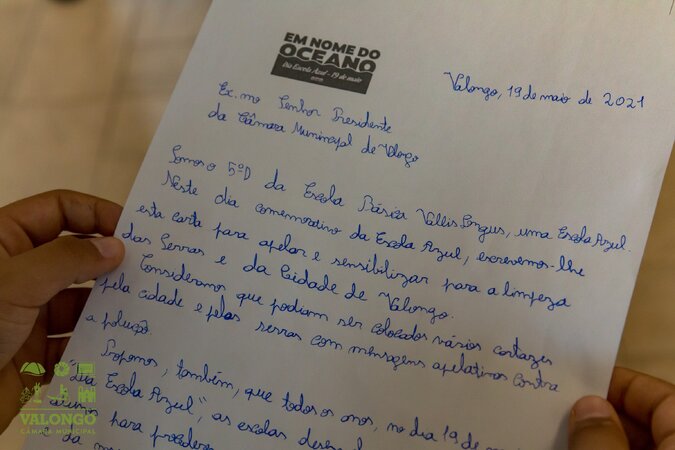 EM NOME DO
OCEANO
Dia Escola Azul - 19 de maio
Valongo, 19 de maio de 2021
Ex.mo Senhor Presidente
da Câmara Municipal de Valongo
Somos o 5ºD da Escola Básica Vallis Longus, uma Escola Azul.
Neste dia comemorativo da Escola Azul, escrevemos-lhe
esta carta para apelar e sensibilizar para a limpeza
das Serras e da Cidade de Valongo.
Consideramos que podiam ser colocados vários cartazes
pela cidade e pelas serras com mensagens apelativas contra
a poluição.
Propomos, também, que todos os anos, no dia 19 de
"Dia Escola Azul", as escolas
para
da
VALONGO
CÂMARA MUNICIPAL